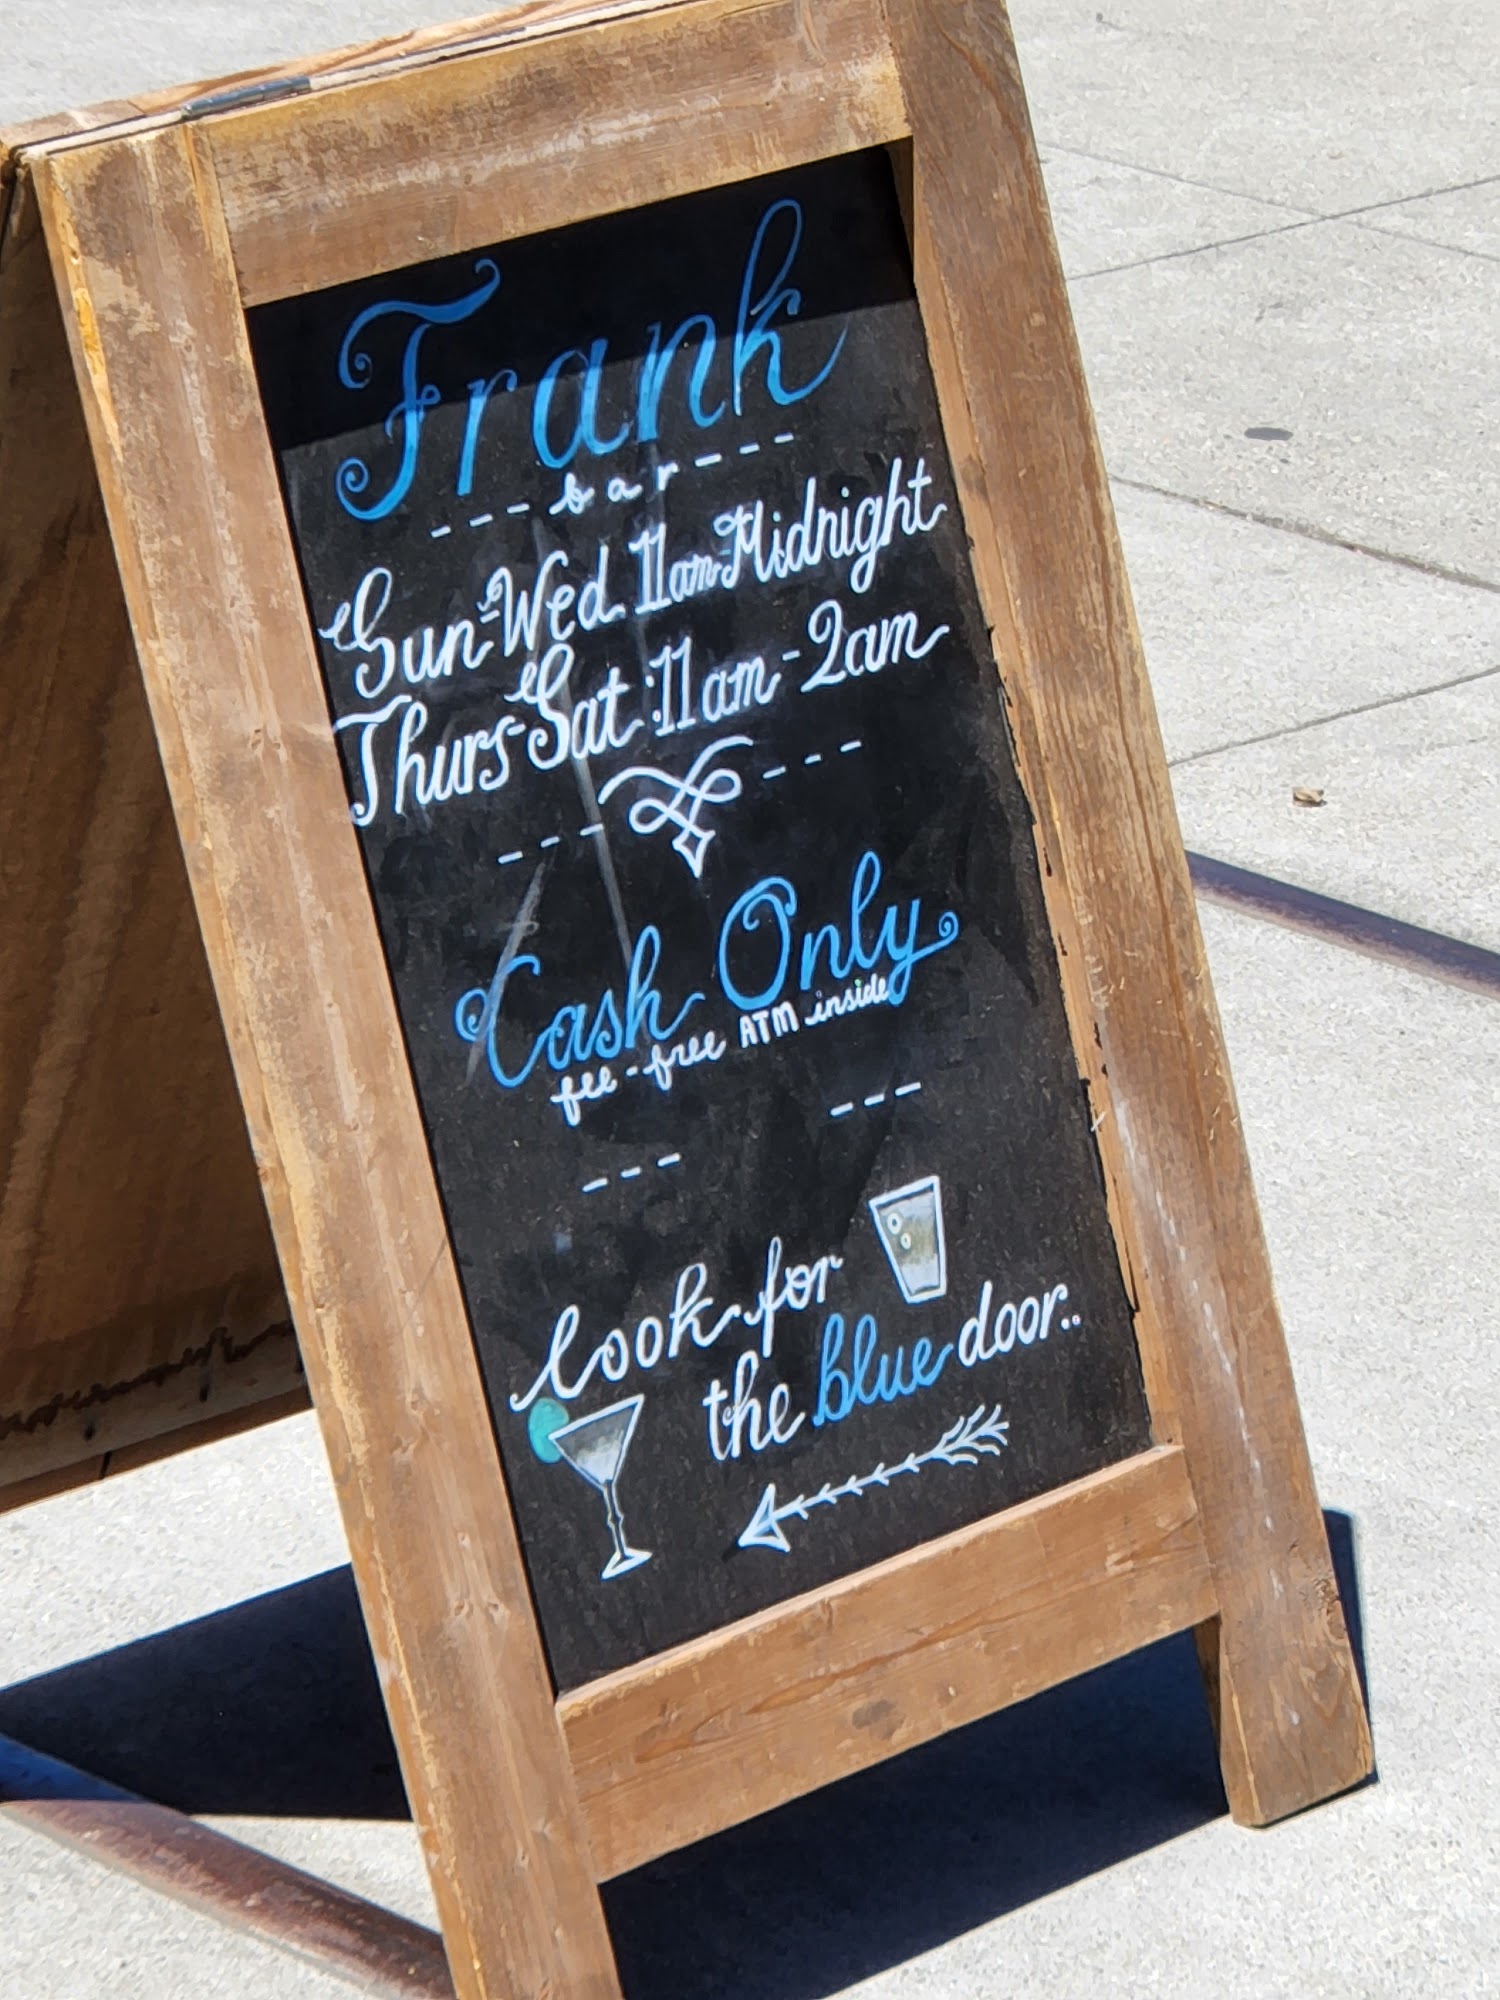 Frank
bar
Sun-Wed 11am-Midnight
Thurs-Sat 11am-2am
Cash Only
fee-free ATM inside
look for
the blue door..